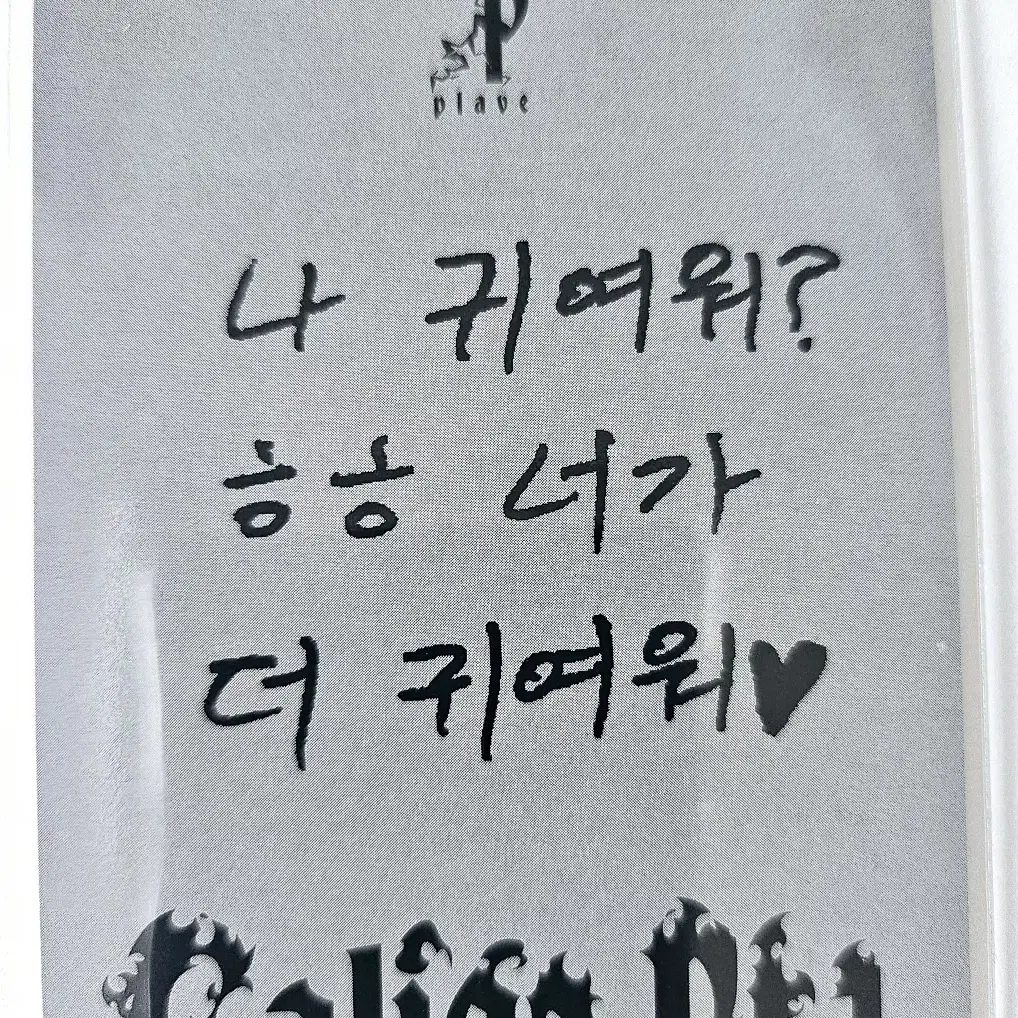 plave
나 귀여워?
ㅎㅎ 너가
더 귀여워♥
Caligo Pt.1